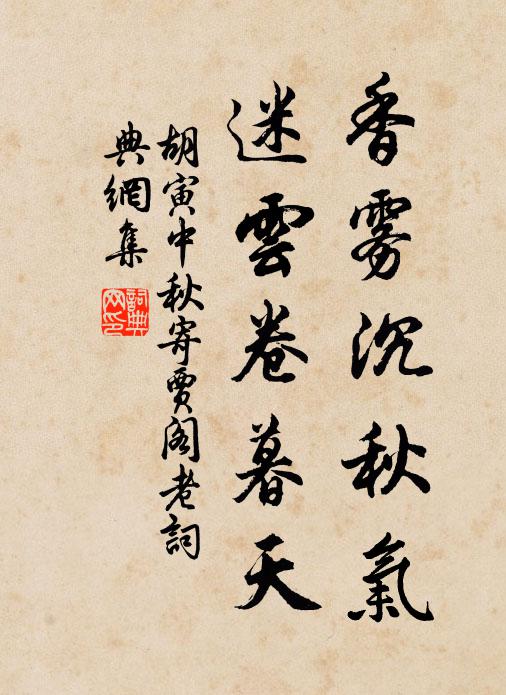 香雾沉秋氣
迷雲卷暮天
胡寅中秋寄賈阁老詞
典網集
詞典网印